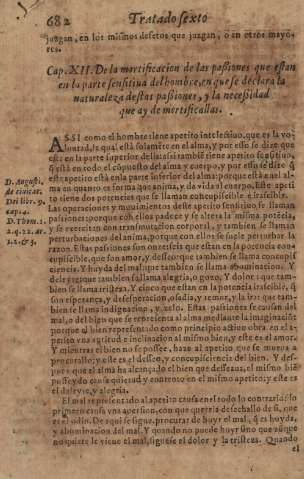 682 Tratado sexto
juzgan, en los mismos defetos que juzgan, o en otros mayo-
res.
Cap. XII. De la mortificacion de las passiones que estan
en la parte sensitiua del hombre, en que se declara la
naturaleza destas passiones, y la necessidad
que ay de mortificallas.
ASSI como el hombre tiene apetito intelectiuo, que es la vo-
luntad, la qual està solamẽte en el alma, y por esso se dize que
està en la parte superior della: assi tambiẽ tiene apetito sensitiuo,
q̃ està en todo el cõpuesto del alma y cuerpo, y por esso se dize q̃
este apetito està en la parte inferior del alma: porque està en el al-
ma en quanto es forma que anima, y da vida al cuerpo. Este apeti
to tiene dos potencias que se llaman concupiscible è irascible.
Las operaciones y mouimientos deste apetito sensitiuo se llaman
passiones: porque con ellos padece y se altera la misma potẽcia,
y se exercitan con transmutacion corporal, y tambien se llaman
perturbaciones del anima, porque con ellos se suele perturbar la
razon. Estas passiones son onze: seis que estan en la potencia con-
cupiscible, que son amor, y desseo: que tambien se llama concupis
ciencia. Y huyda del mal: que tambien se llama abominacion. Y
deleyte: que tambien se llama alegria, o gozo, y dolor: que tam-
bien se llama tristeza. Y cinco que estan en la potencia irascible, q̃
son esperança, y desesperacion, osadia, y temor, y la ira: que tam-
bien se llama indignacion, y zelo. Estas passiones se causan del
mal, o del bien que se representa al alma mediante la imaginaciõ:
porque el bien representado como principio actiuo obra en el a-
petito vna aptitud e inclinacion al mismo bien, y este es el amor.
Y mientras el bien no se possee, haze al apetito que se mueua a
procurallo, y este es el desseo, y concupisciencia del bien. Y des-
pues que el alma ha alcançado el bien que desseaua, el mismo biẽ
posseydo causa quietud y contento en el mismo apetito; y este es
el deleyte, y alegria.
El mal representado al apetito causa en el todo lo contrario: lo
primero causa vna auersion, con que querria desechallo de si, que
es el odio. De aqui se sigue, procurar de huyr el mal, q̃ es huyda,
y abominacion del mal. Y quando no puede huyr sino que aunque
no quiere le viene el mal, siguese el dolor y la tristeza. Quando
el
D. Augusti.
de ciuitat.
Dei lib. 9.
cap. 4.
D. Thom. 1.
2. q. 22. ar.
1. 2. & 3.